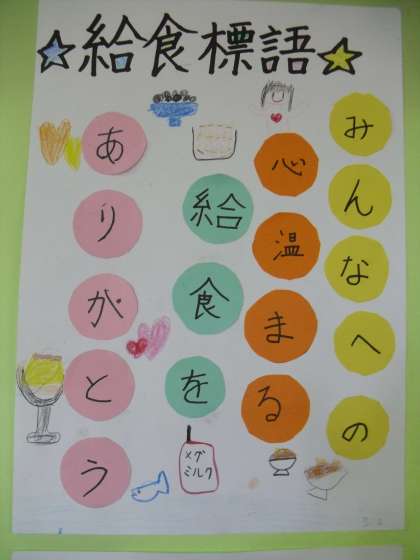 ☆給食標語☆
みんなへの
心温まる
給食を
ありがとう
メグ
ミルク